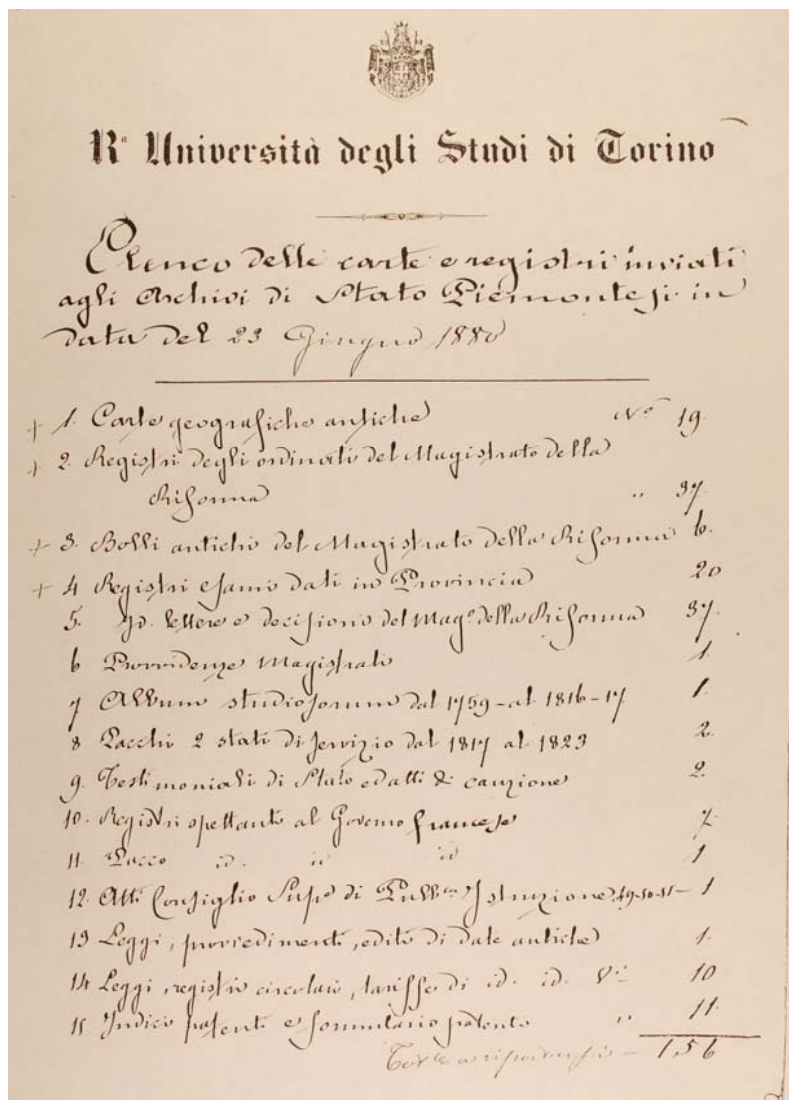 Rª Università degli Studi di Torino
Elenco delle carte e registri inviati
agli Archivi di Stato Piemontesi in
data del 23 Giugno 1880
+ 1. Carte geografiche antiche Nº 19.
+ 2. Registri degli ordinati del Magistrato della
Riforma " 37.
+ 3. Bolli antichi del Magistrato della Riforma 6.
+ 4 Registri esami dati in Provincia 20
5. Id. lettere e decisioni del Magº della Riforma 37.
6 Provvidenze Magistrato 1.
7 Album studiosorum dal 1759 - al 1816-17 1.
8 Pacchi 2 stati di servizio dal 1817 al 1823 2.
9. Testimoniali di Stato ed atti di cauzione 2.
10. Registri spettanti al Governo francese
11. Pacco id. id id 1
12. Atti Consiglio Supe di Pubbca Istruzione 49-50-51 - 1
13 Leggi, provvedimenti, editti di date antiche 1.
14 Leggi, registri circolari, tariffe di id. id. 10
15 Indici patenti e formulario patenti " 11.
156